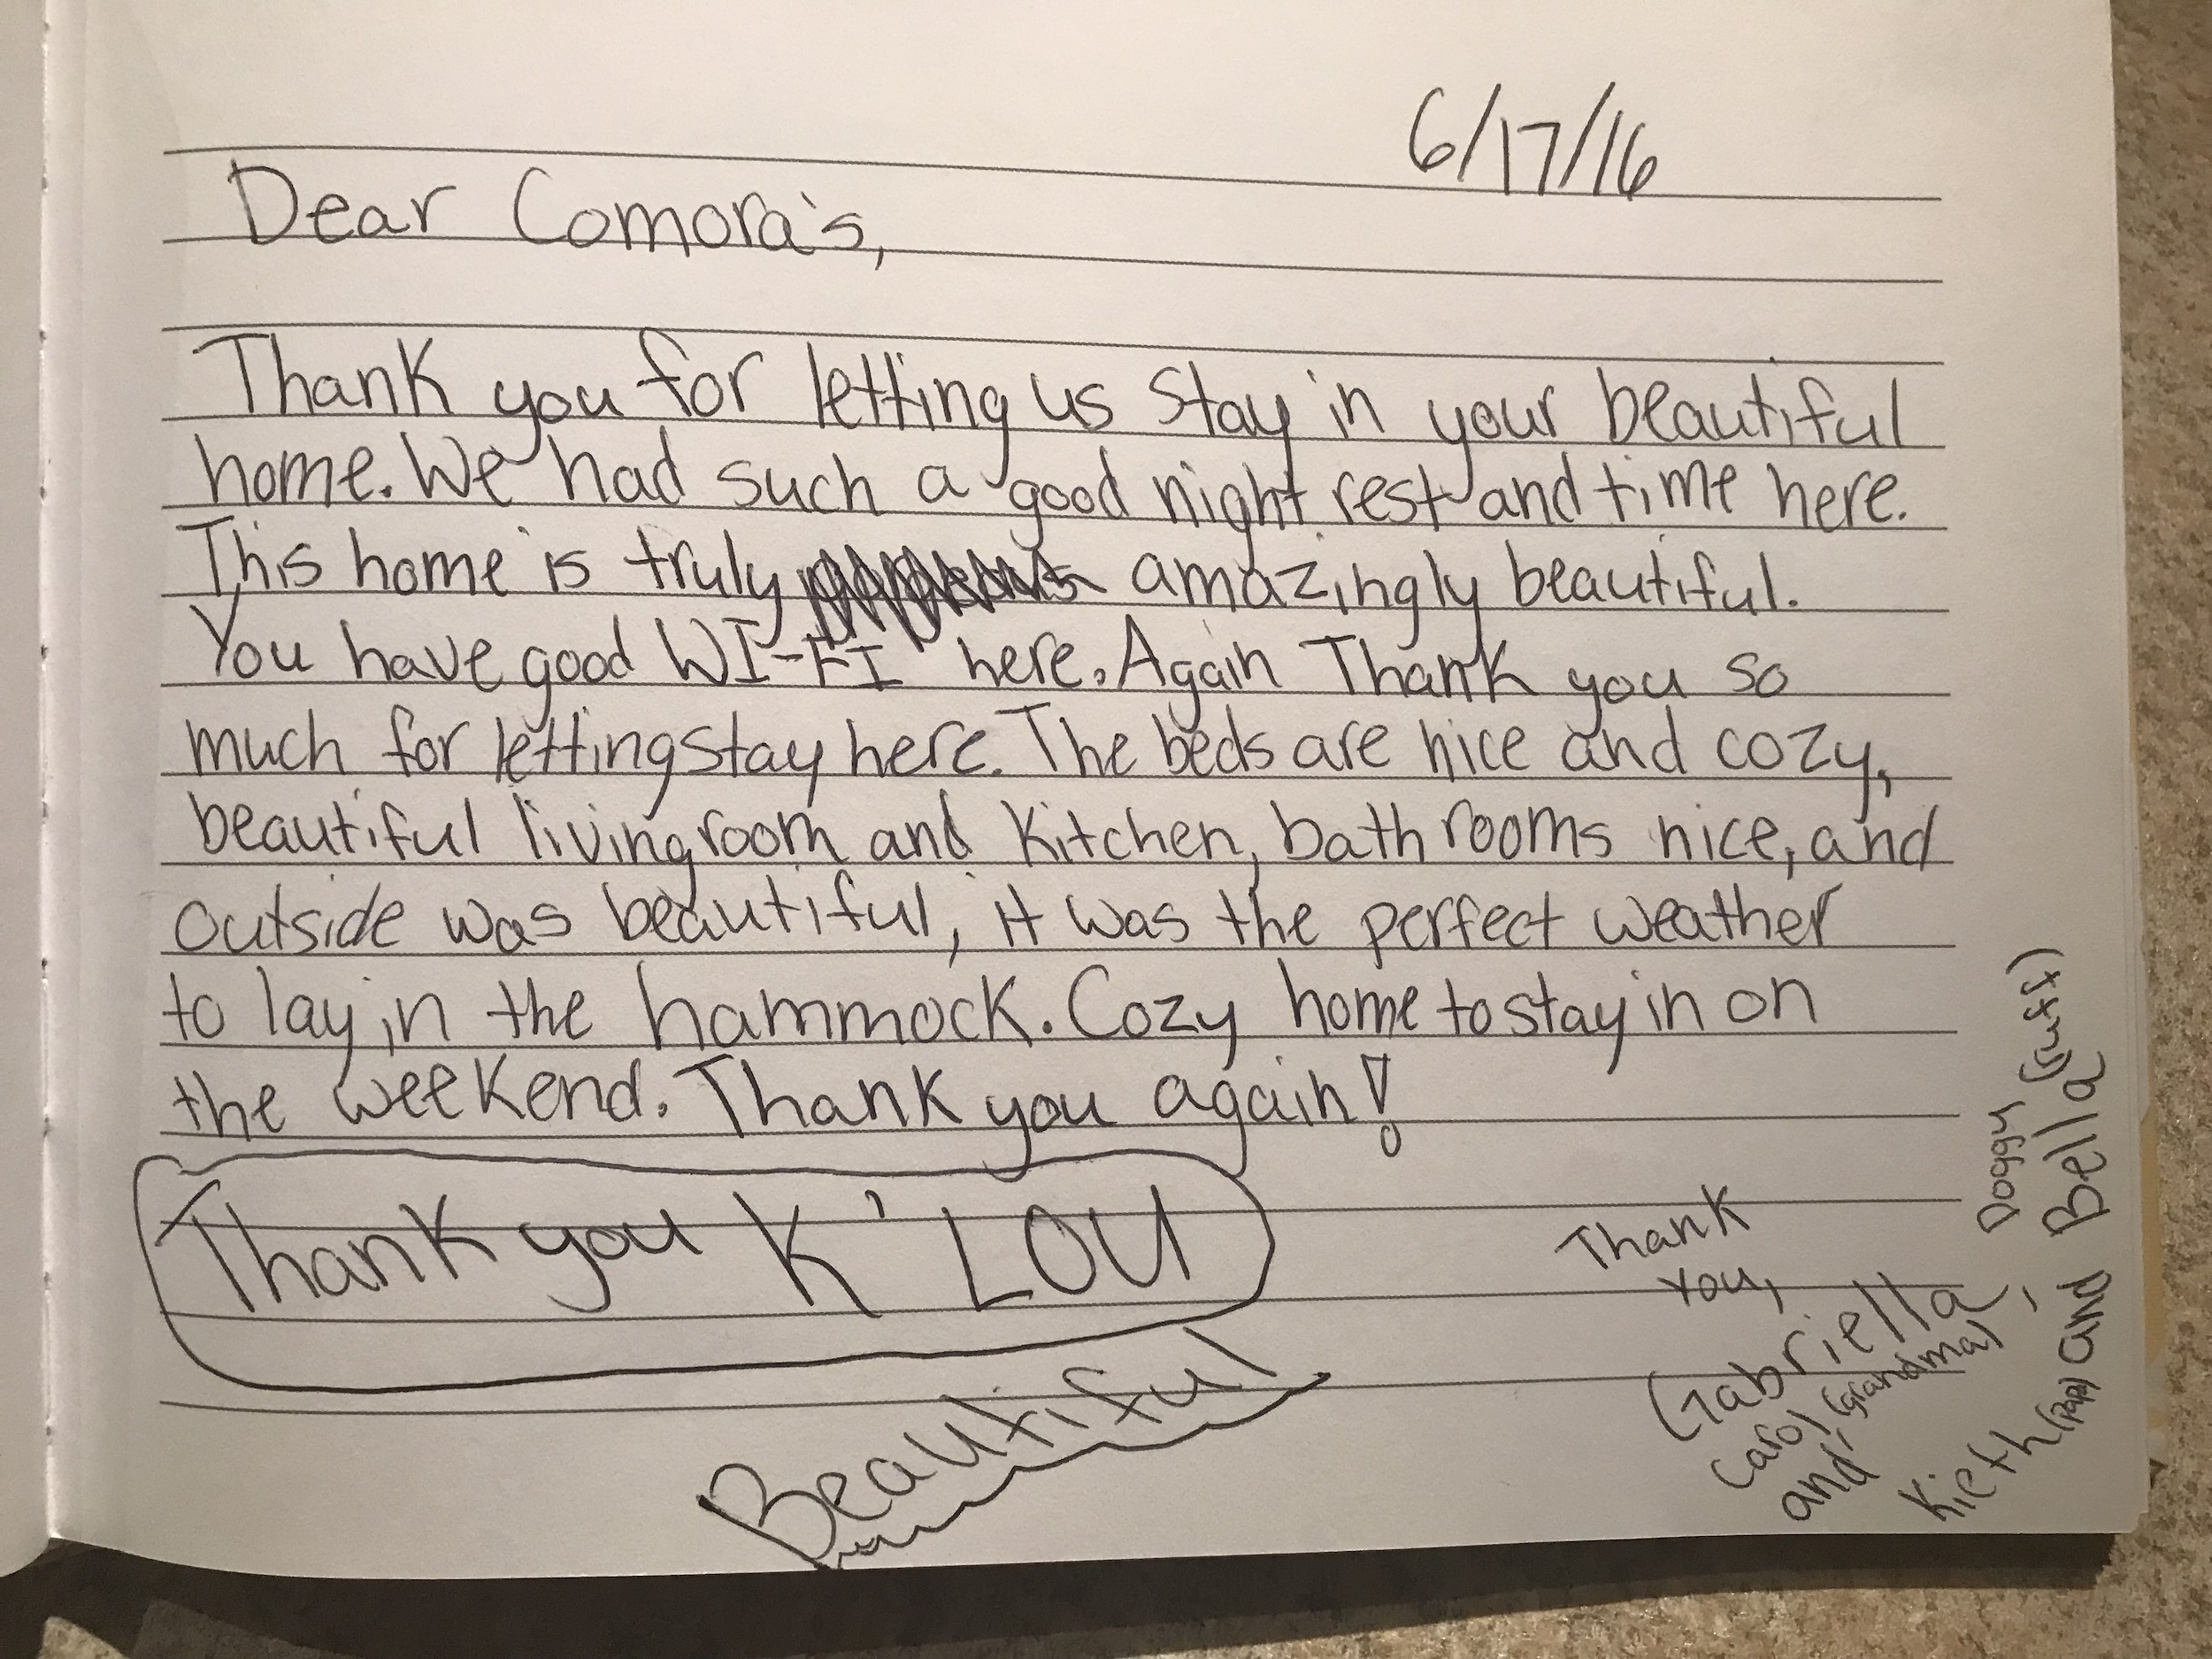 6/17/16
Dear Comora's,
Thank you for letting us stay in your beautiful
home. We had such a good night rest and time here.
This home is truly amazingly beautiful.
You have good WI-FI here. Again Thank you so
much for letting stay here. The beds are nice and cozy,
beautiful living room and kitchen, bathrooms nice, and
outside was beautiful, it was the perfect weather
to lay in the hammock. Cozy home to stay in on
the weekend. Thank you again!
Thank you K' LOU
Beautiful
Thank
You,
Gabriella,
Carol (Grandma),
and
Kieth (Papa) and Bella
Doggy (ruff)